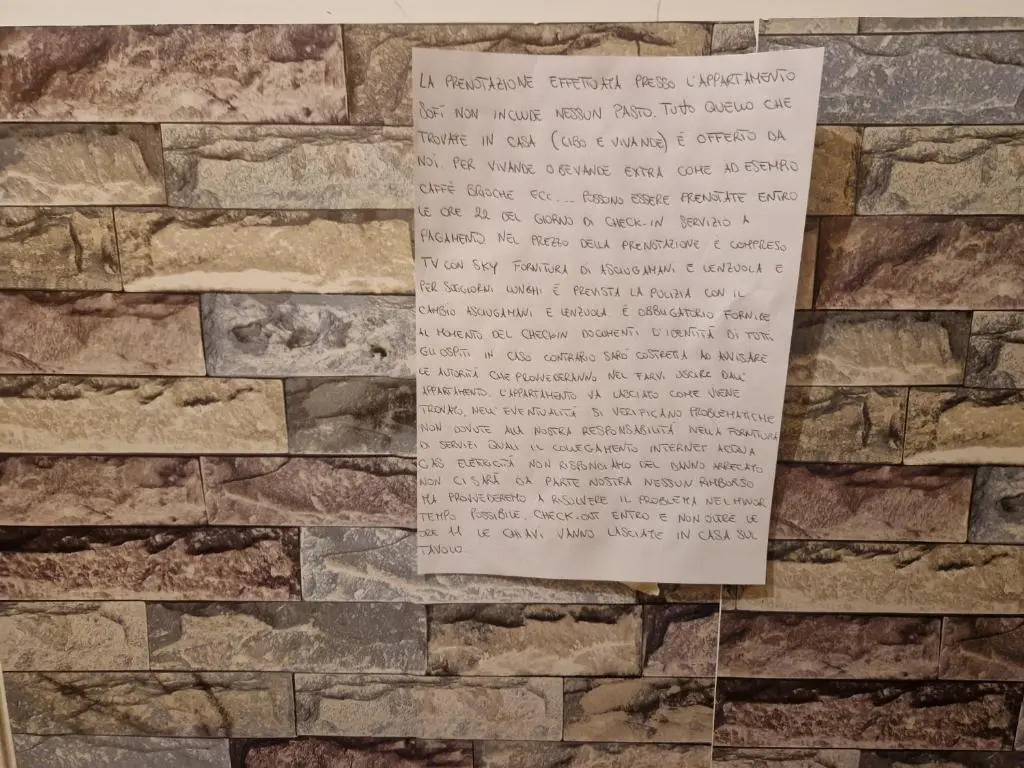 LA PRENOTAZIONE EFFETUATA PRESSO L'APPARTAMENTO
SOFÌ NON INCLUDE NESSUN PASTO. TUTTO QUELLO CHE
TROVATE IN CASA (CIBO E VIVANDE) È OFFERTO DA
NOI. PER VIVANDE O BEVANDE EXTRA COME AD ESEMPIO
CAFFÈ BRIOCHE ECC... POSSONO ESSERE PRENOTATE ENTRO
LE ORE 22 DEL GIORNO DI CHECK-IN SERVIZIO A
PAGAMENTO. NEL PREZZO DELLA PRENOTAZIONE È COMPRESO
TV CON SKY FORNITURA DI ASCIUGAMANI E LENZUOLA E
PER SOGGIORNI LUNGHI È PREVISTA LA PULIZIA CON IL
CAMBIO ASCIUGAMANI E LENZUOLA È OBBLIGATORIO FORNIRE
AL MOMENTO DEL CHECK-IN DOCUMENTI D'IDENTITÀ DI TUTTI
GLI OSPITI IN CASO CONTRARIO SARÒ COSTRETTA AD AVVISARE
LE AUTORITÀ CHE PROVVEDERANNO NEL FARVI USCIRE DALL'
APPARTAMENTO. L'APPARTAMENTO VA LASCIATO COME VIENE
TROVATO, NELL'EVENTUALITÀ SI VERIFICANO PROBLEMATICHE
NON DOVUTE ALLA NOSTRA RESPONSABILITÀ NELLA FORNITURA
DI SERVIZI QUALI IL COLLEGAMENTO INTERNET ACQUA
GAS ELETRICITÀ NON RISPONDIAMO DEL DANNO ARRECATO
NON CI SARÀ DA PARTE NOSTRA NESSUN RIMBORSO
MA PROVVEDEREMO A RISOLVERE IL PROBLEMA NEL MINOR
TEMPO POSSIBILE. CHECK-OUT ENTRO E NON OLTRE LE
ORE 11 LE CHIAVI VANNO LASCIATE IN CASA SUL
TAVOLO